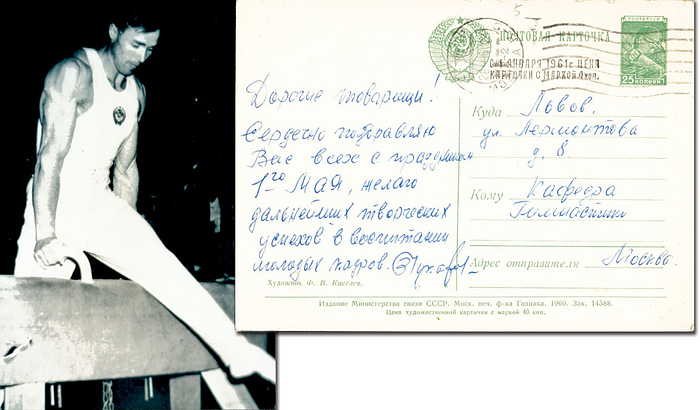 ПОЧТОВАЯ КАРТОЧКА
ПОЧТА СССР
25 КОПЕЕК
С 1 ЯНВАРЯ 1961 г. ЦЕНА
КАРТОЧКИ С МАРКОЙ 4 коп.
Дорогие товарищи!
Сердечно поздравляю
Вас всех с праздником
1го МАЯ, желаю
дальнейших творческих
успехов в воспитании
молодых кадров.
Художник Ф. В. Киселев.
Куда Львов,
ул. Лермонтова
д. 8
Кому Кафедра
Гимнастики
Адрес отправителя Москва.
Издание Министерства связи СССР. Моск. печ. ф-ка Гознака. 1960. Зак. 14588.
Цена художественной карточки с маркой 40 коп.